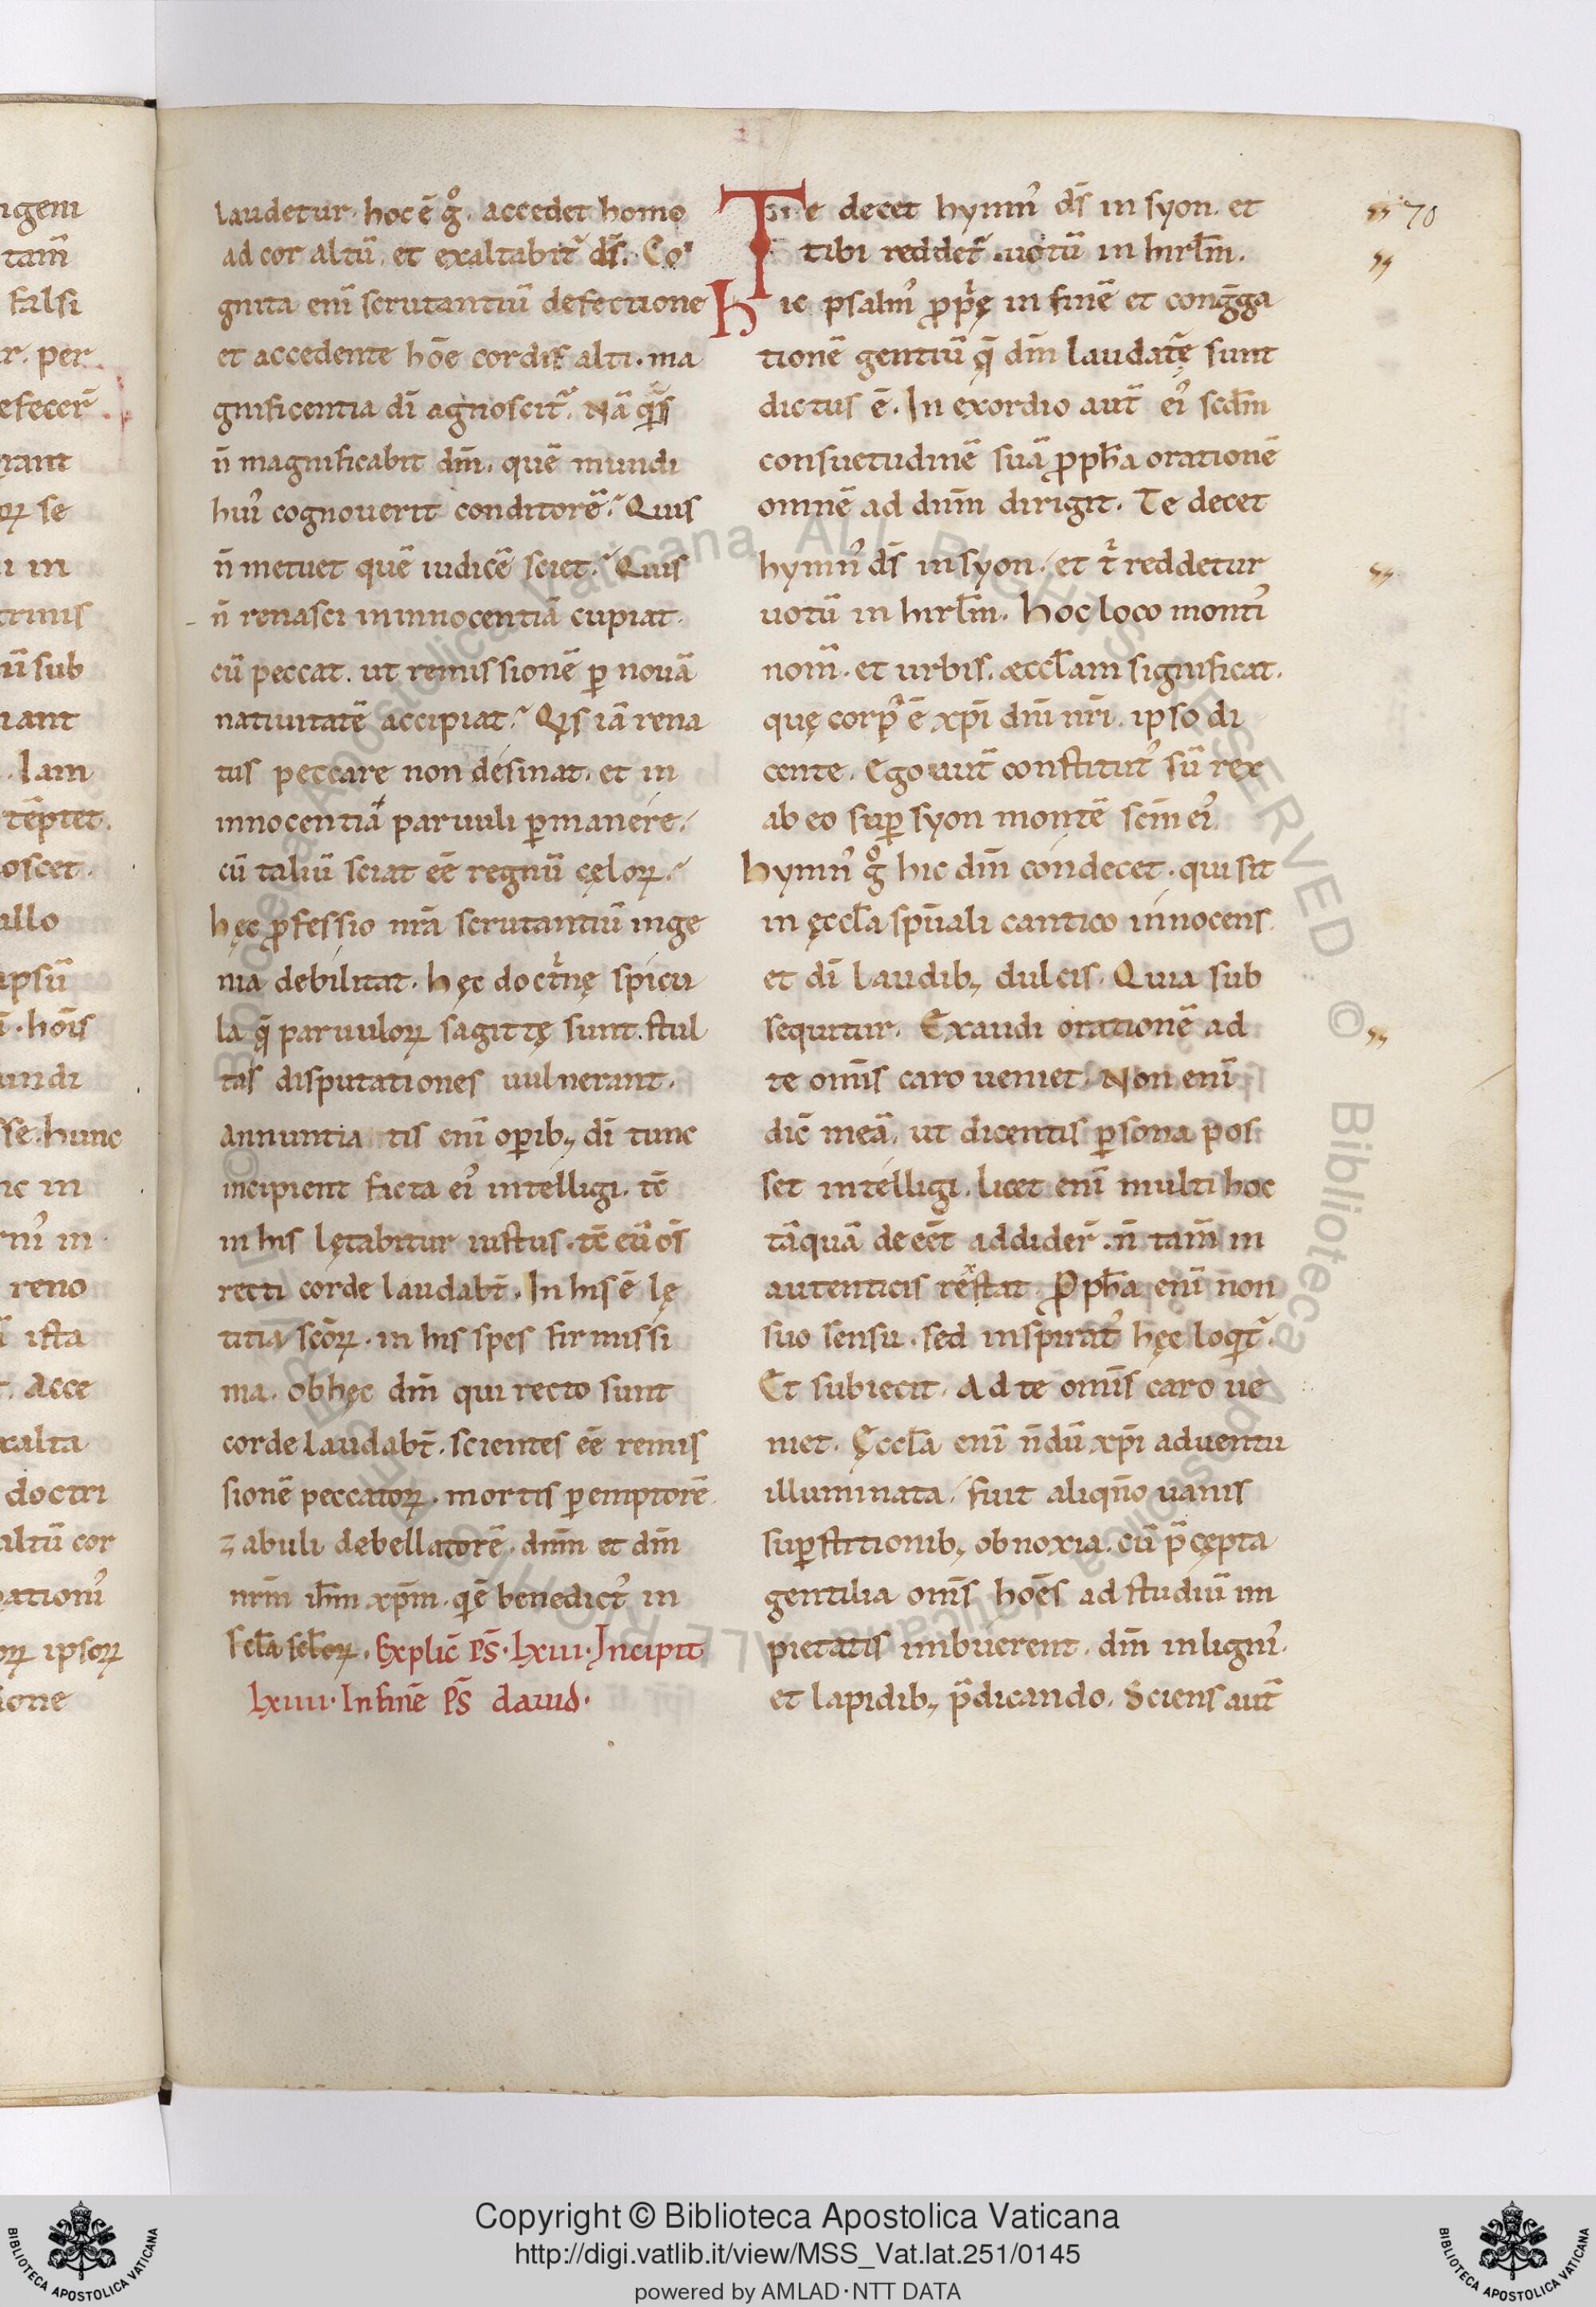 ngeni
tam̄
falsi
r. per
efecer̄.
rant
oꝝ se
u in
trinis
ū sub
nant
. Iam
tēptet.
oscet.
ullo
ipsū
ī. hōis
undi
sse. hunc
nc in
rnꝰ in
reno
ista
. Acce
xalta
doctri
altū cor
rationꝰ
oꝝ ipsoꝝ
ione
laudetur. hoc ē g̊. accedet homo
ad cor altū. et exaltabit᷑ ds̄. Co
gnita enī scrutantiū defectione
et accedente hōe cordis alti. ma
gnificentia dī agnoscit᷑. Nā q̄s
n̄ magnificabit dm̄. quē mundi
huiꝰ cognouerit conditorē? Quis
n̄ metuet quē iudicē sciet? Quis
n̄ renasci in innocentiā cupiat
cū peccat. ut remissionē ꝑ nouā
natiuitatē accipiat? Qis iā rena
tus peccare non desinat. et in
innocentiā paruuli ꝑmanere.
cū taliū sciat eē regnū cęloꝝ?
hęc ꝓfessio nr̄a scrutantiū inge
nia debilitat. hęc doctͥnę spicu
la q̄ paruuloꝝ sagittę sunt. stul
tas disputationes uulnerant.
Annuntiatis enī oꝑib; dī tunc
incipient facta eiꝰ intelligi. tc̄
in his lętabitur iustus. tc̄ eū os̄
recti corde laudabt̄. In his ē lę
titia scōꝝ. in his spes firmissi
ma. ob hęc dm̄ qui recto sunt
corde laudabt̄. scientes eē remis
sionē peccatoꝝ. mortis ꝑemptorē
zabuli debellatorē. dnm̄ et dm̄
nrm̄ ihm̄ xpm̄. qͥ ē benedictꝰ in
scl̄a scl̄oꝝ. Explic̄ PS̄. lxiii. Incipit
lxiiii. In finē PS̄ dauid.
Te decet hymnꝰ ds̄ in syon. et
tibi reddet᷑ uotū in hirl̄m.
Hic psalmꝰ ꝓpͥę in finē et conḡga
tionē gentiū q̄ dm̄ laudatę̄ sunt
dictus ē. In exordio aut̄ eiꝰ scd̄m
consuetudinē suā ꝓph̄a orationē
omnē ad dnm̄ dirigit. Te decet
hymnꝰ ds̄ in syon. et tͥ reddetur
uotū in hirl̄m. Hoc loco montiꝰ
nom̄. et urbis. æccl̄am significat.
quę corpꝰ ē xpī dnī nrī. ipso di
cente. Ego aut̄ constitutꝰ sū rex
ab eo suꝑ syon montē scm̄ eiꝰ
hymnꝰ g̊ hic dm̄ condecet. qui sit
in ęccl̄a sp̄uali cantico innocens
et dī laudib; dulcis. Quia sub
sequitur. Exaudi orationē ad
te omīs caro ueniet. Non enī
dic̄ meā. ut dicentis ꝑsona pos
set intelligi. licet enī multi hoc
tāquā deeēt addider̄. n̄ tam̄ in
autenticis restat. Ꝓph̄a enī non
suo sensu. sed inspiratꝰ hęc loqͥt᷑.
Et subiecit. Ad te omīs caro ue
niet. Ęccl̄a enī n̄dū xpī aduentu
illuminata. fuit aliqn̄o uanis
suꝑstitionib; obnoxia. cū p̄cępta
gentilia omīs hoēs ad studiū im
pietatis imbuerent. dm̄ in ligniꝰ.
et lapidib; p̄dicando. Sciens aut̄
70
Copyright © Biblioteca Apostolica Vaticana
http://digi.vatlib.it/view/MSS_Vat.lat.251/0145
powered by AMLAD·NTT DATA
BIBLIOTECA APOSTOLICA VATICANA
BIBLIOTECA APOSTOLICA VATICANA